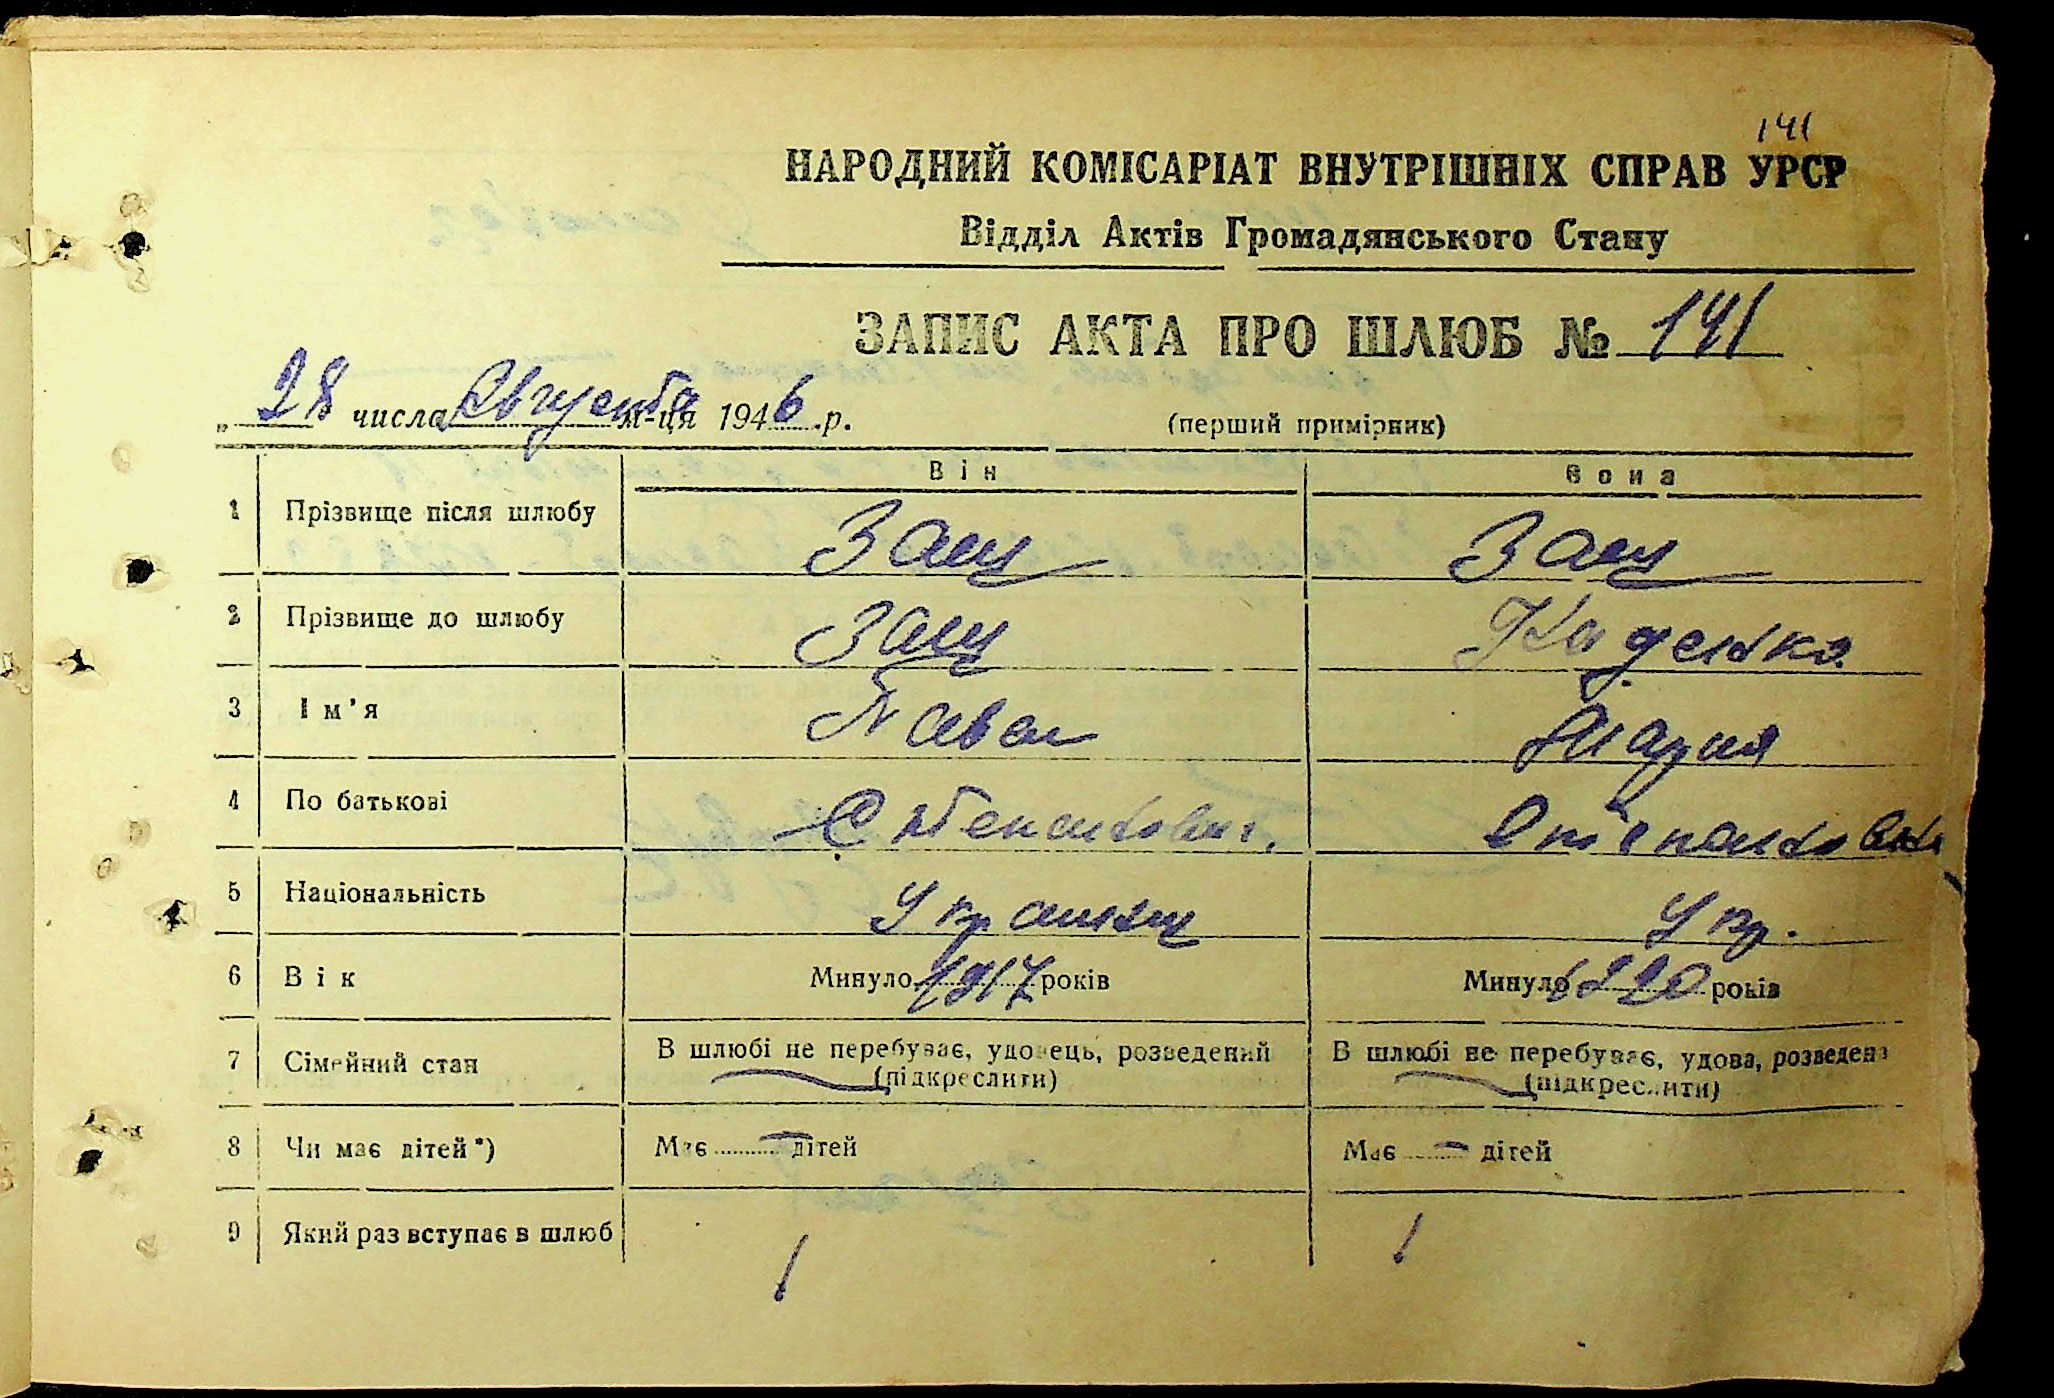 141
НАРОДНИЙ КОМІСАРІАТ ВНУТРІШНІХ СПРАВ УРСР
Відділ Актів Громадянського Стану
ЗАПИС АКТА ПРО ШЛЮБ № 141
„ 28 числа Августа м-ця 1946 р. (перший примірник)
Він Вона
1 Прізвище після шлюбу Заяц Заяц
2 Прізвище до шлюбу Заяц
3 Ім'я Павел Мария
4 По батькові Степанович Степановна
5 Національність Украинец Укр.
6 Вік Минуло 1917 років Минуло 1920 років
7 Сімейний стан В шлюбі не перебуває, удовець, розведений В шлюбі не перебуває, удова, розведена
(підкреслити) (підкреслити)
8 Чи має дітей*) Має — дітей Має — дітей
9 Який раз вступає в шлюб 1 1